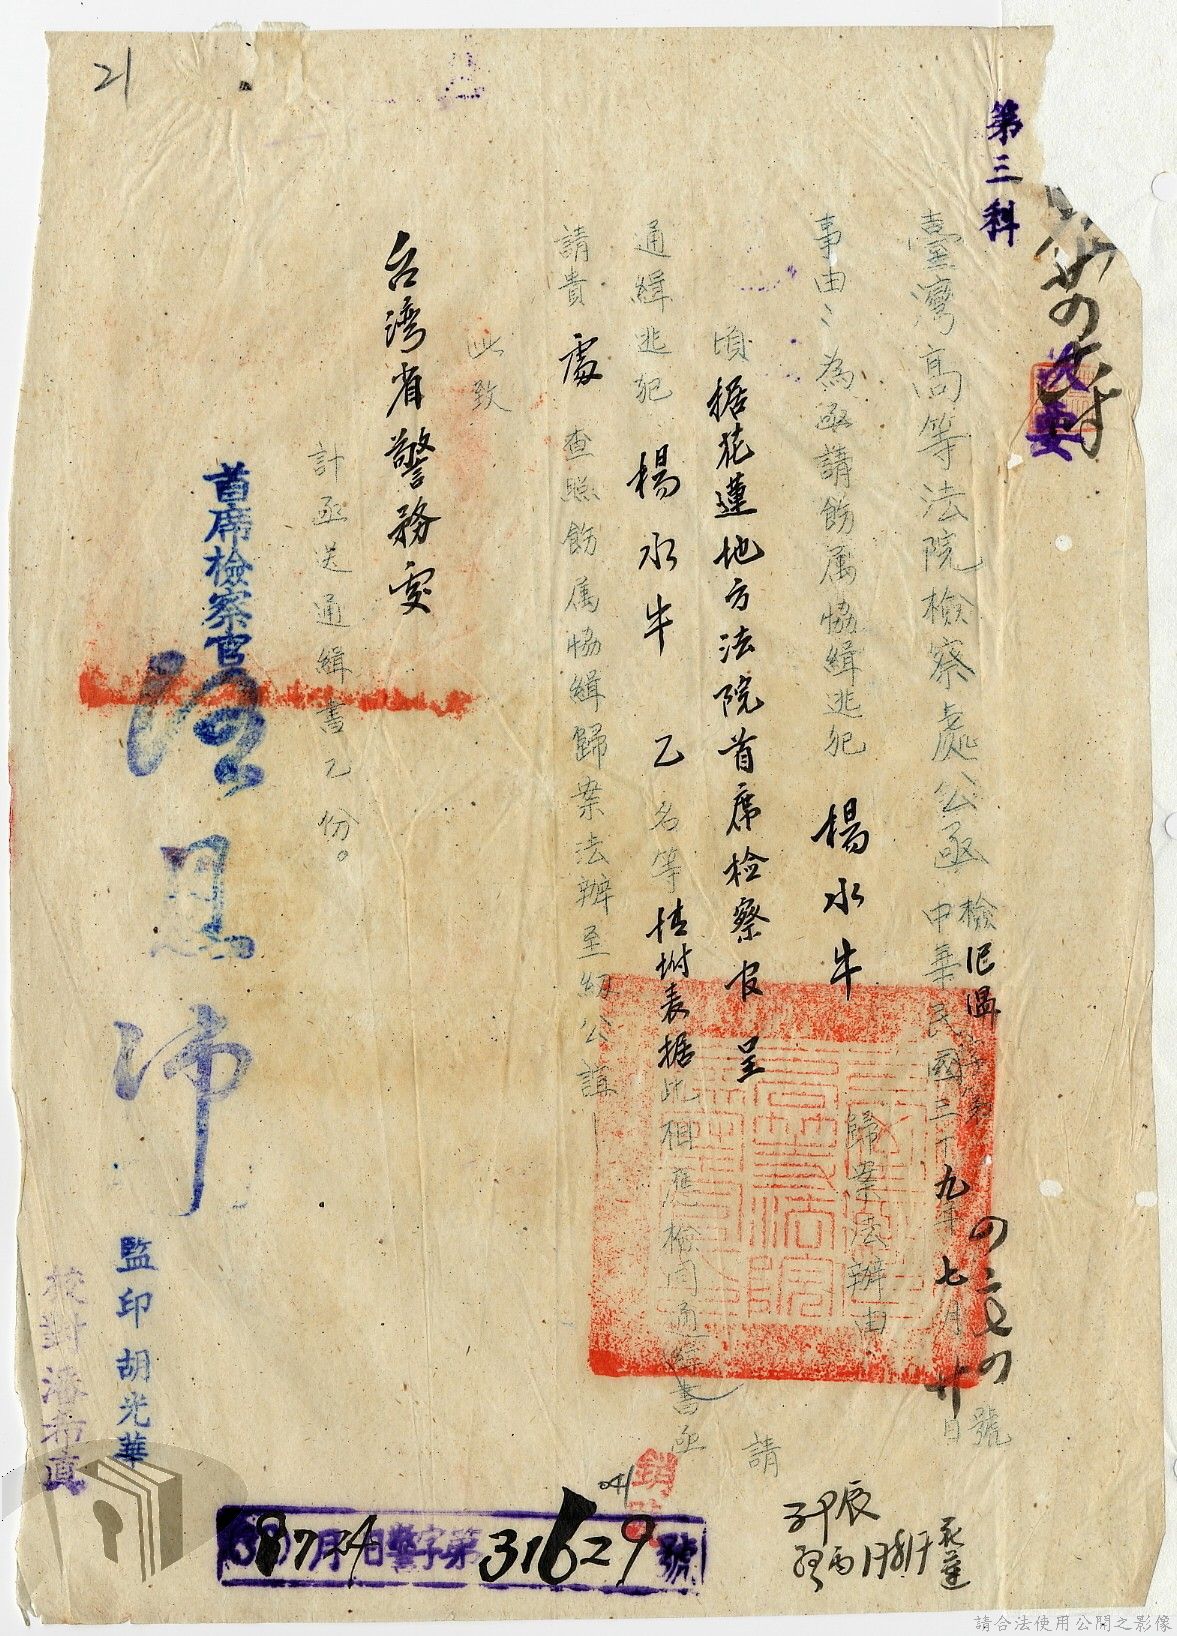 21
第三科
臺灣高等法院檢察處公函
檢
號
中華民國三十九年七月廿日
事由：為函請飭屬協緝逃犯 楊水牛 歸案法辦由
頃据花蓮地方法院首席檢察官呈請
通緝逃犯 楊水牛 乙名等情附表据此相應檢同通緝書函
請貴處查照飭屬協緝歸案法辦至紉公誼
此致
台湾省警務處
計函送通緝書乙份。
首席檢察官
監印胡光華
校對潘希真
月 日警字第31629號
請合法使用公開之影像